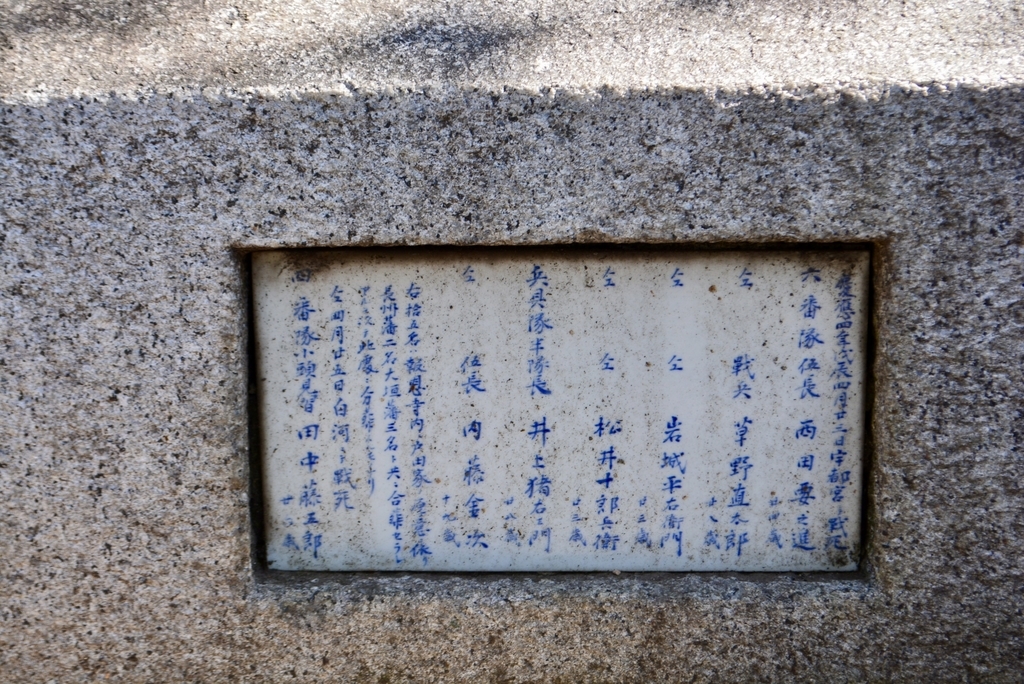 慶應四年戊辰四月廿三日宇都宮ニ戦死
六番隊伍長 西田要之進
廿四歳
仝 戦兵 草野直太郎
十八歳
仝 仝 岩城平右衛門
廿三歳
仝 仝 松井十郎兵衛
廿三歳
兵具隊半隊長 井上猪右エ門
廿八歳
仝 伍長 内藤金次
十九歳
右拾五名報恩寺内戸田家ノ
長州藩二名大垣藩三名ト共ニ合葬セラレ
此處ニ
仝四月廿五日白河ニ戦死
四番隊小頭見習 田中藤五郎
廿六歳